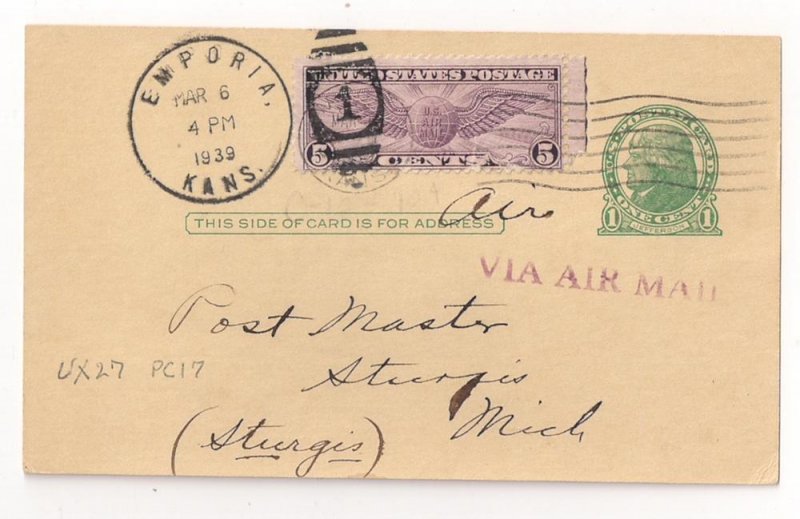 EMPORIA,
MAR 6
4 PM
1939
KANS.
1
UNITED STATES POSTAGE
U.S.
AIR
MAIL
5 CENTS 5
U.S. POSTAL CARD
1 ONE CENT 1
JEFFERSON
Air
THIS SIDE OF CARD IS FOR ADDRESS
VIA AIR MAIL
Post Master
UX27 PC17
Sturgis
Mich
(Sturgis)